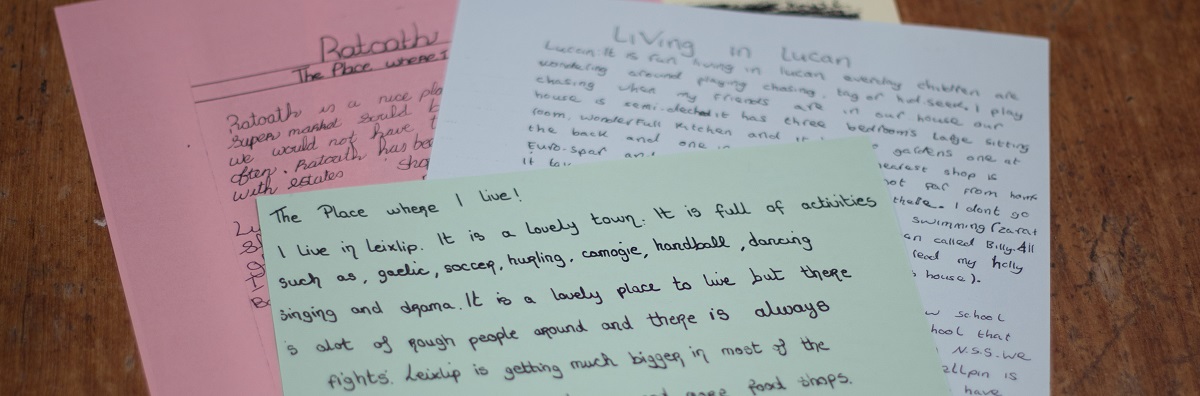 Ratoath
The Place where I
Ratoath is a nice pla
super market sould b
we would not have t
often. Ratoath has be
with estates sho
Living in Lucan
Lucan. It is fun living in lucan everday children are
wondering around playing chasing, tag or hid.seek. I play
chasing when my friends are in our house our
house is semi-deched it has three bedrooms large sitting
room, wonderfull kitchen and it gardens one at
the back and one in nearest shop is
Euro-spar an not far from home
it there. I dont go
swimming
an called Billy. All
lead my holly
house).
w school
hool that
N.S.S. we
allpin is
have
The Place where I live!
I live in Leixlip. It is a lovely town. It is full of activities
such as, gaelic, soccer, hurling, camogie, handball, dancing
singing and drama. It is a lovely place to live but there
is alot of rough people around and there is always
fights. Leixlip is getting much bigger in most of the
food shops.